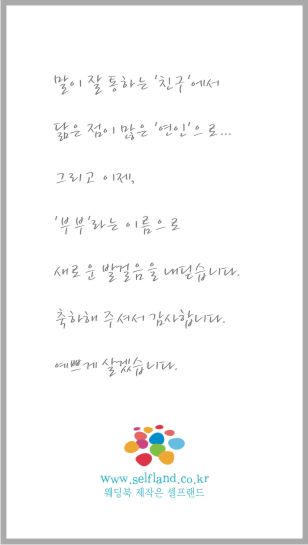 말이 잘 통하는 '친구'에서
닮은 점이 많은 '연인'으로...
그리고 이제,
'부부'라는 이름으로
새로운 발걸음을 내딛습니다.
축하해 주셔서 감사합니다.
예쁘게 살겠습니다.
www.selfland.co.kr
웨딩북 제작은 셀프랜드